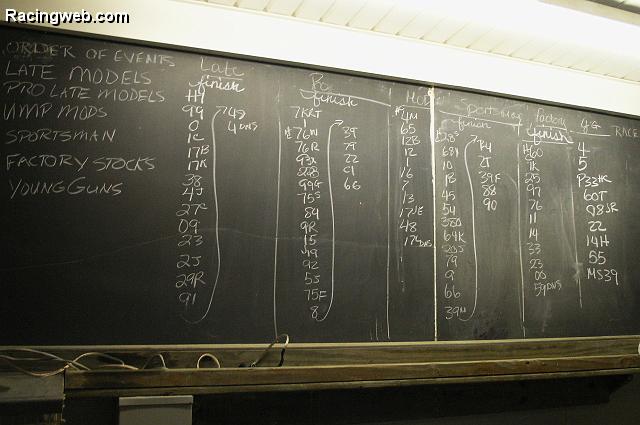 Racingweb.com
ORDER OF EVENTS
LATE MODELS
PRO LATE MODELS
UMP MODS
SPORTSMAN
FACTORY STOCKS
YOUNG GUNS
Late
finish
99
0
1C
17B
17K
38
4J
27C
09
23
2J
29R
91
49
4 DNS
Pro
finish
7KRT
1
76W
76R
93X
99G
75S
84
9R
15
49
92
5S
75F
8
39
79
22
C1
66
Mod
4M
65
12B
12
16
7
13
17JE
48
Sportsman
finish
10
1B
45
54
64K
79
9
66
39M
2T
39F
88
90
Factory
finish
60
7R
25
97
76
11
14
33
23
00
59 DNS
YG
RACE
4
5
P33HK
60T
98JR
22
14H
55
MS39